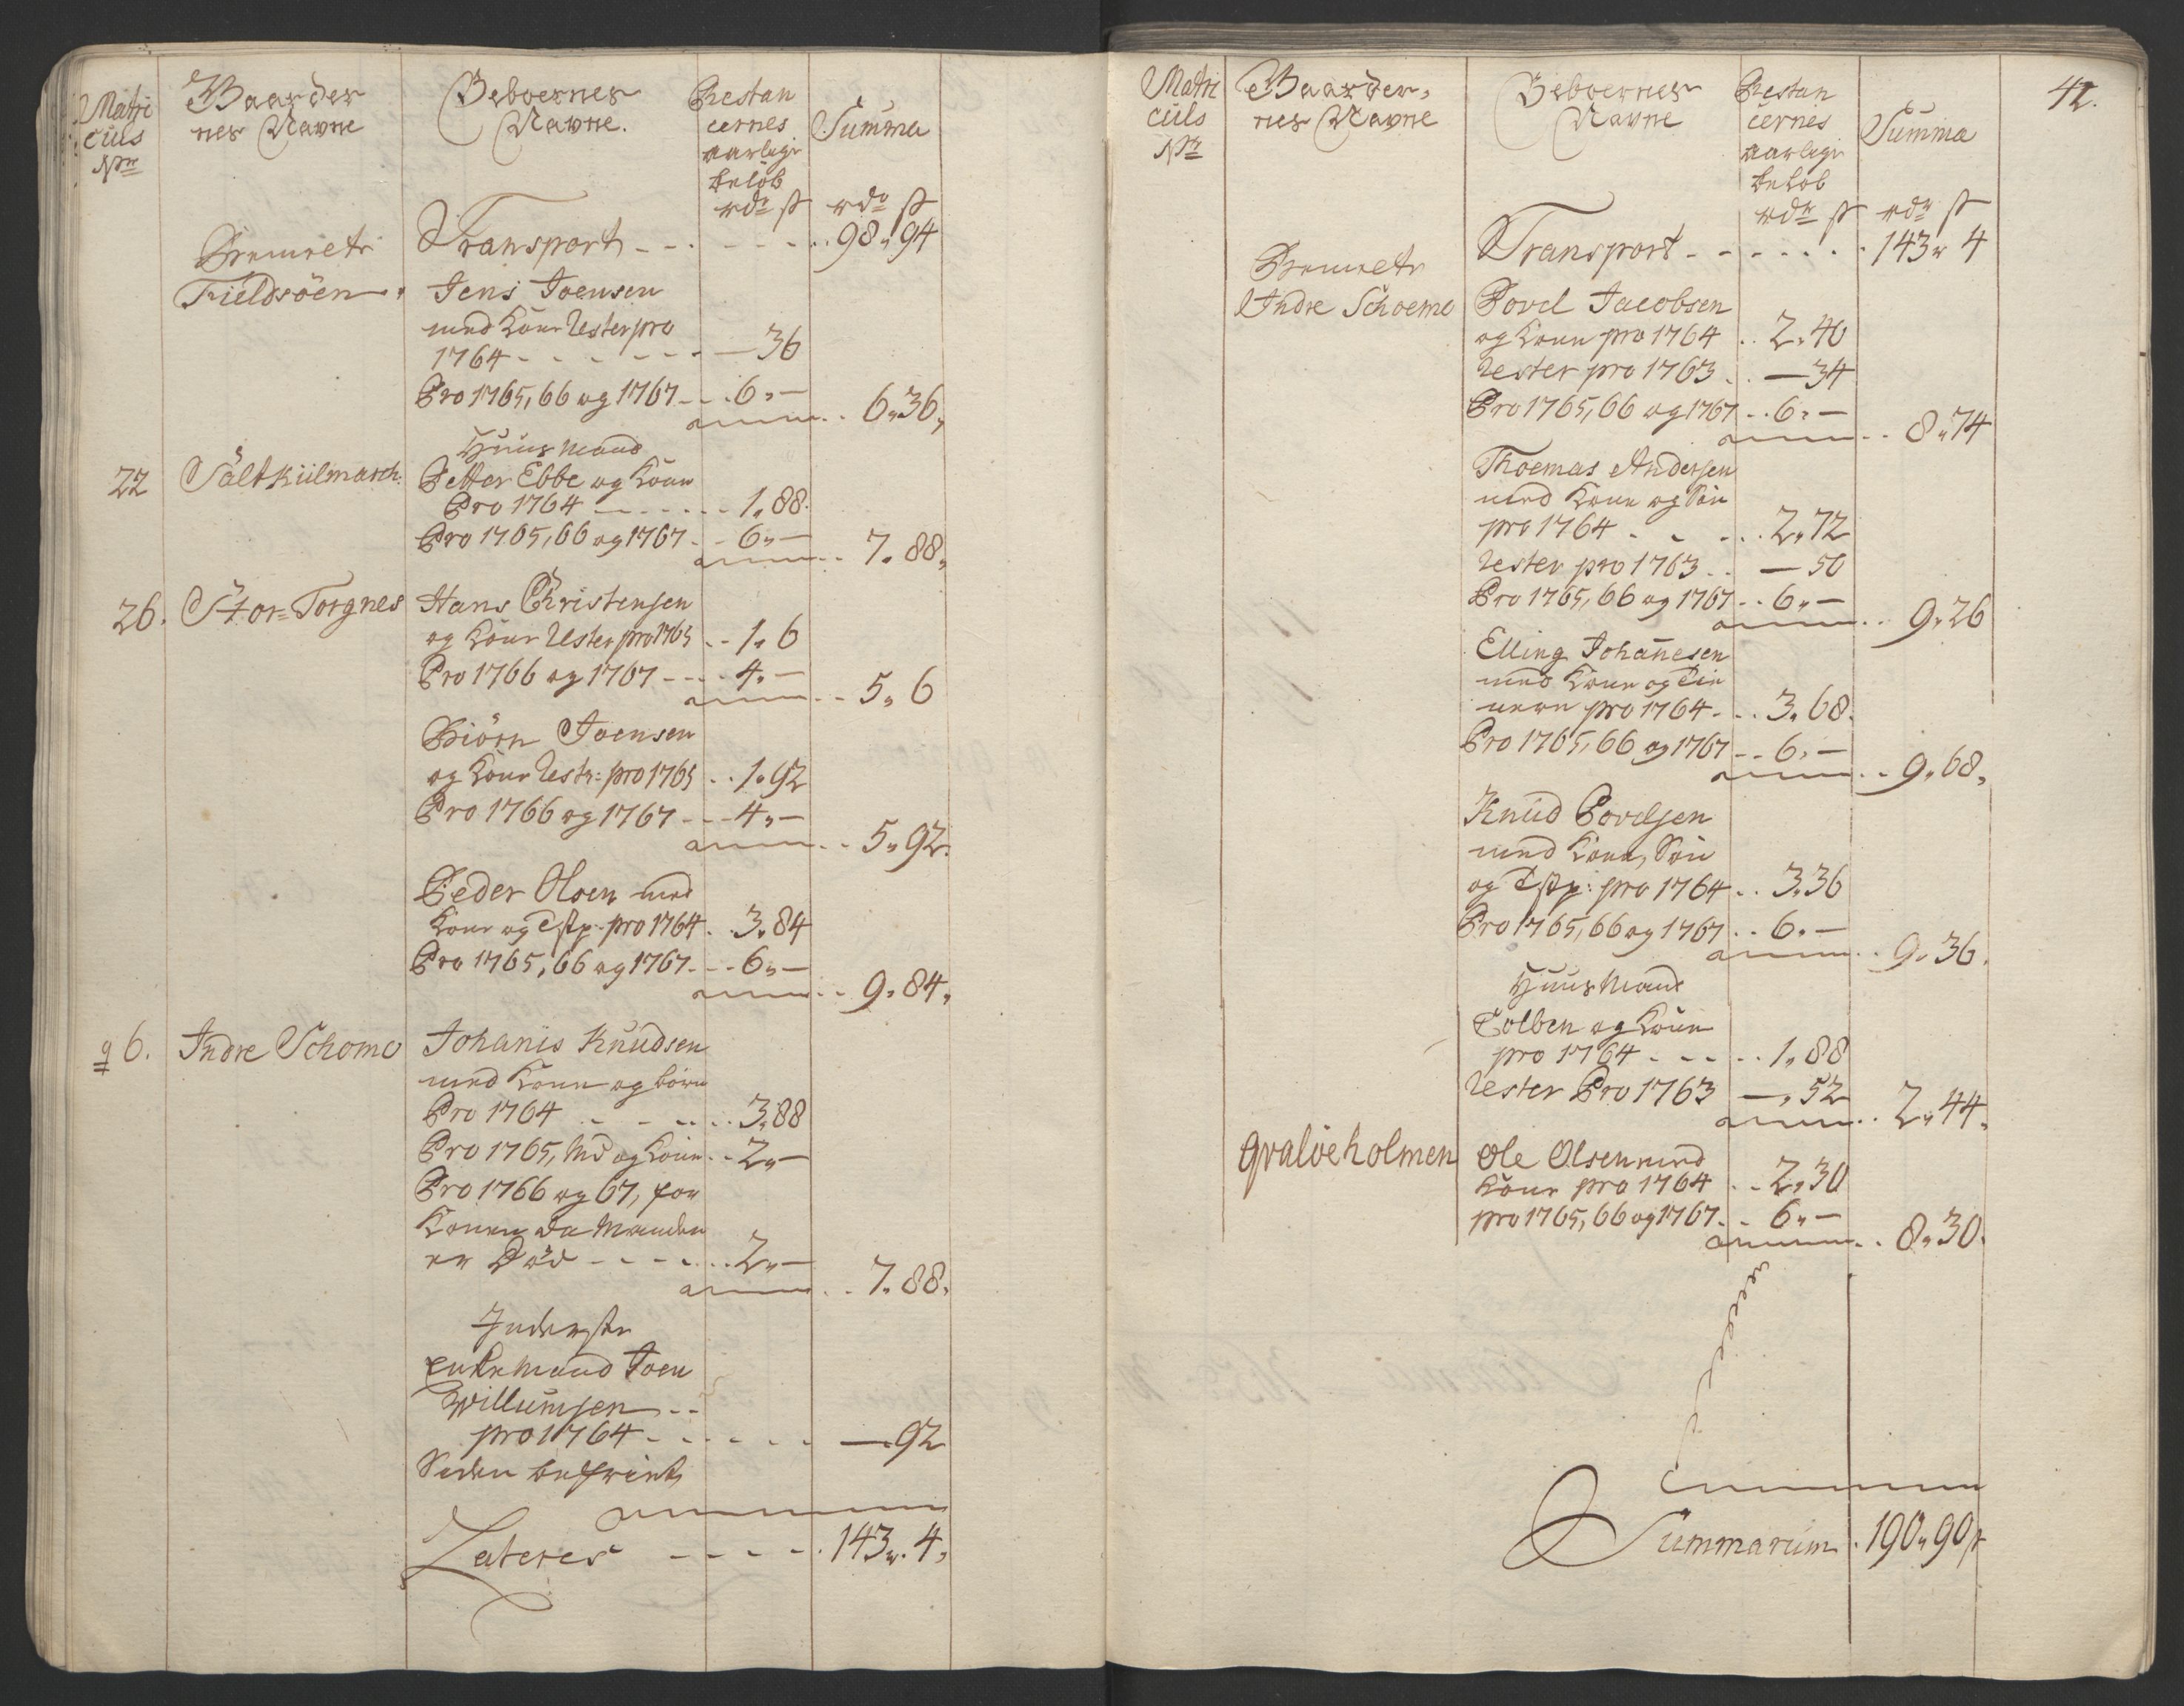 Matri
culs
Nr
Gaarder
nes Navne
Beboernes
Navne.
Restan
cernes
aarlige
beløb
rdr ß
Summa
rdr ß
Brønøe
Fieldsöen
Transport - - - - - 98 „ 94
Jens Joensen
med Kone Rester pro
1764 - - - - - - - 36
Pro 1765, 66 og 1767 - - 6 „ -
6 „ 36,
Huusmand
22 Saltkiilmarch:
Petter Ebbe og Kone
Pro 1764 - - - - - 1 „ 88.
Pro 1765, 66 og 1767 - - 6 „ -
7 „ 88,
26. Stor=Torgnes
Hans Christensen
og Kone Rester pro 1765 - - 1 „ 6
Pro 1766 og 1767 - - - 4 „ -
5 „ 6
Biörn Joensen
og Kone Restr: pro 1765 - - 1 „ 92
Pro 1766 og 1767 - - - 4 „ -
5 „ 92.
Peder Olsen med
Kone og Tstp. pro 1764 . . 3 „ 84
Pro 1765, 66 og 1767. - - 6 „ -
9 „ 84,
96. Indre Schomo
Johanis Knudsen
med Kone og börn
Pro 1764 - - - - 3 „ 88
Pro 1765, Md og Kone - - 2 „ -
Pro 1766 og 67, for
Konen da Manden
er Död - - - - - 2 „ -
7 „ 88.
Inderste
Enkemand Joen
Willumsen - -
pro 1764 - - - - - - — 92
Siden befriet
Lateres - - - - 143 „ 4,
42.
Matri
culs
Nr
Gaarder,
nes Navne
Beboernes
Navne
Restan
cernes
aarlige
beløb
rdr ß
Summa
rdr ß
Transport - - - - - - 143 „ 4
Indre Schoemo
Povel Jacobsen
og Kone pro 1764 . . 2 „ 40
Rester pro 1763 . . — 34
Pro 1765, 66 og 1767 - - 6 „ -
8 „ 74
Thoemas Andersen
med Kone og Sön
pro 1764 - - - - 2 „ 72
Rester pro 1763 . . — 50
Pro 1765, 66 og 1767 - - 6 „ -
9 „ 26
Elling Johanesen
med Kone og Tie
nere pro 1764 - - - 3 „ 68.
Pro 1765, 66 og 1767 - - 6 „ -
9 „ 68,
Knud Povelsen
med Kone, Sön
og Tstp: pro 1764 . . 3 „ 36
Pro 1765, 66 og 1767 . . 6 „ -
9 „ 36.
Huusmand
Tolben og Kone
pro 1764 - - - - - 1 „ 88
Rester Pro 1763 — „ 52
2 „ 44.
Qvalöeholmen
Ole Olsen med
Kone pro 1764 - - 2 „ 30
pro 1765, 66 og 1767. - - 6 „ -
8 „ 30.
Summarum . 190 „ 90 ß